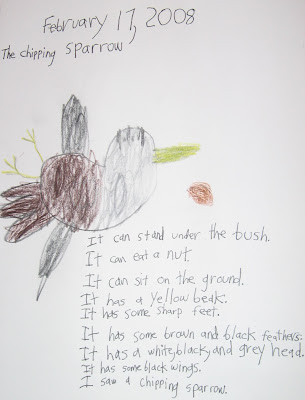 February 17, 2008
The chipping sparrow
It can stand under the bush.
It can eat a nut
It can sit on the ground.
It has a yellow beak.
It has some sharp feet.
It has some brown and black feathers.
It has a white, black, and grey head.
It has some black wings.
I saw a chipping sparrow.